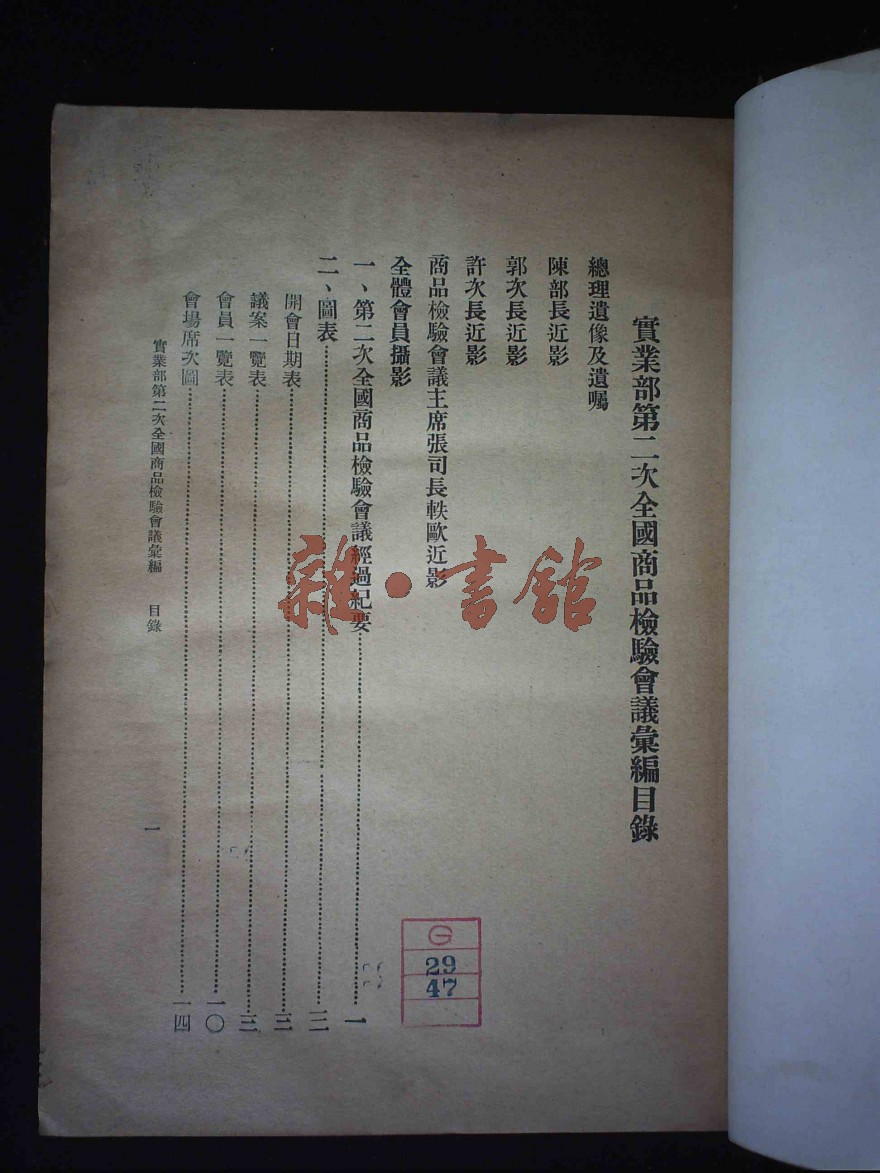 實業部第二次全國商品檢驗會議彙編目錄
總理遺像及遺囑
陳部長近影
郭次長近影
許次長近影
商品檢驗會議主席張司長軼歐近影
全體會員攝影
一、第二次全國商品檢驗會議經過紀要……一
二、圖表……三
開會日期表……三
議案一覽表……三
會員一覽表……一〇
會場席次圖……一四
實業部第二次全國商品檢驗會議彙編 目錄
一
G
29
47
雜·書館